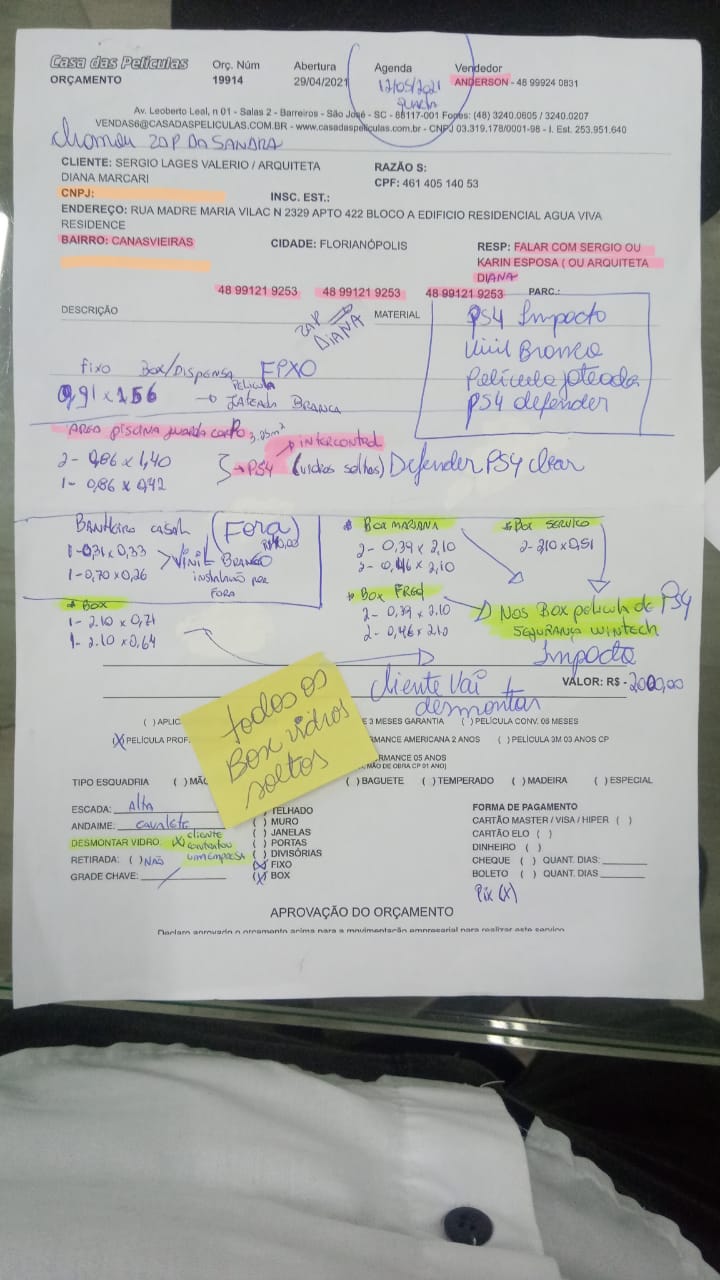 Casa das Películas
ORÇAMENTO
Orç. Núm
19914
Abertura
29/04/2021
Agenda
12/05/2021
quarta
Vendedor
ANDERSON - 48 99924 0831
Av. Leoberto Leal, n 01 - Salas 2 - Barreiros - São José - SC - 88117-001 Fones: (48) 3240.0605 / 3240.0207
VENDAS6@CASADASPELICULAS.COM.BR - www.casadaspeliculas.com.br - CNPJ 03.319.178/0001-98 - I. Est. 253.951.640
chamou ZAP DA SANDRA
CLIENTE: SERGIO LAGES VALERIO / ARQUITETA
DIANA MARCARI
RAZÃO S:
CPF: 461 405 140 53
CNPJ:
INSC. EST.:
ENDEREÇO: RUA MADRE MARIA VILAC N 2329 APTO 422 BLOCO A EDIFICIO RESIDENCIAL AGUA VIVA
RESIDENCE
BAIRRO: CANASVIEIRAS
CIDADE: FLORIANÓPOLIS
RESP: FALAR COM SERGIO OU
KARIN ESPOSA ( OU ARQUITETA
DIANA
48 99121 9253 48 99121 9253 48 99121 9253 PARC.:
DESCRIÇÃO
ZAP
DIANA
MATERIAL
PS4 Impacto
Vinil Branco
Película jateada
PS4 defender
Fixo Box/Dispensa
0,91 x 1,56
PELICULA
JATEADA BRANCA
AREA PISCINA guarda corpo 3,25m²
INTERCONTROL
2- 0,86 x 1,40
1- 0,86 x 0,42
PS4 (vidros soltos) Defender PS4 clear
BANHEIRO CASAL (Fora)
1-0,31 x 0,33
1-0,70 x 0,26
VINIL BRANCO
instalando por
FORA
BOX
1- 2.10 x 0,71
1- 2.10 x 0,64
BOX MARIANA
2- 0,39 x 2,10
2- 0,46 x 2,10
BOX SERVICO
2- 2,10 x 0,51
BOX FRED
2- 0,39 x 2.10
2- 0,46 x 2.10
Nos Box pelicula de PS4
SEGURANÇA WINTECH
Impacto
cliente vai
desmontar
VALOR: R$ - 2000,00
todos os
Box vidros
soltos
( ) APLIC
E 3 MESES GARANTIA ( ) PELÍCULA CONV. 06 MESES
(X) PELÍCULA PROF.
RMANCE AMERICANA 2 ANOS ( ) PELÍCULA 3M 03 ANOS CP
RMANCE 05 ANOS
MÃO DE OBRA CP 01 ANO)
TIPO ESQUADRIA ( ) MÃO
( ) BAGUETE ( ) TEMPERADO ( ) MADEIRA ( ) ESPECIAL
ESCADA: Alta
ANDAIME: cavalete
DESMONTAR VIDRO: (X) cliente
contratou
uma empresa
RETIRADA: ( ) NÃO
GRADE CHAVE:
TELHADO
( ) MURO
( ) JANELAS
( ) PORTAS
( ) DIVISÓRIAS
(X) FIXO
(X) BOX
FORMA DE PAGAMENTO
CARTÃO MASTER / VISA / HIPER ( )
CARTÃO ELO ( )
DINHEIRO ( )
CHEQUE ( ) QUANT. DIAS:
BOLETO ( ) QUANT. DIAS
Pix (X)
APROVAÇÃO DO ORÇAMENTO
Declaro aprovado o orçamento acima para a movimentação empresarial para realizar este serviço